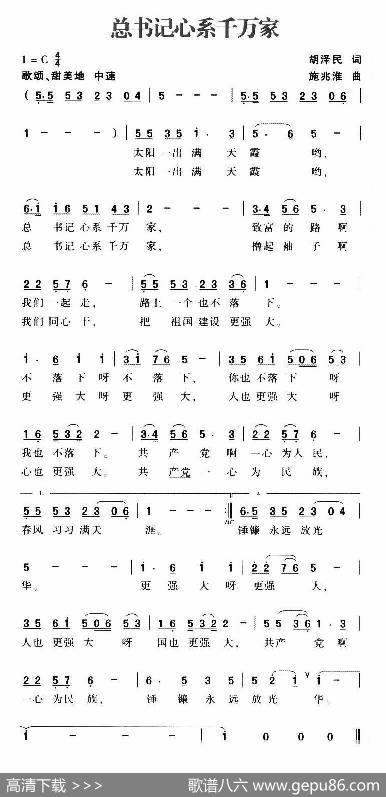 总书记心系千万家
1=C 4/4
胡泽民 词
歌颂、甜美地 中速
施兆淮 曲
(5·5 53 23 04 | 5 - - - |
1 - - -) | 55 35 1· 3 | 5· 6 5 - |
太阳一出满天霞哟,
太阳一出满天霞哟,
6·1 16 51 43 | 2 - - - | 3·4 56 5· 3 |
总书记心系千万家, 致富的路啊
总书记心系千万家, 撸起袖子啊
22 57 6 - | 5·5 53 23 56 | 1 - - - |
我们一起走, 路上一个也不落下。
我们同心干, 把祖国建设更强大。
1· 6 1 1 | 31 76 5 - | 35 61 5065 53 |
不落下呀不落下, 你也不落下呀
更强大呀更强大, 人也更强大呀
16 532 2 - | 3·4 56 5· 3 | 22 57 6 - |
我也不落下。 共产党啊一心为人民,
心也更强大。 共产党一心为民族,
55 53 23 06 | 1 - - - :| 5·5 53 23 04 |
春风习习满天涯。 锤镰永远放光
5 - - - | 1· 6 1 1 | 22 776 5 - |
华。 更强大呀更强大,
35 61 5065 53 | 16 532 2 - | 55 356 1· 3 |
人也更强大呀国也更强大, 共产党啊
22 57 6 - | 5·5 3 5 | 52 1 - |
一心为民族, 锤镰永远放光华。
1 - - - | 1 - - - | 1 0 0 0 ‖
高清下载 >>>
歌谱八六 www.gepu86.com